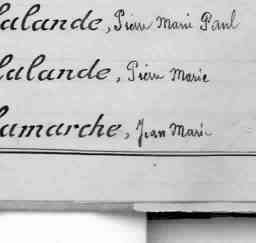 lalande, Pierre Marie Paul
lalande, Pierre Marie
lamarche, Jean Marie